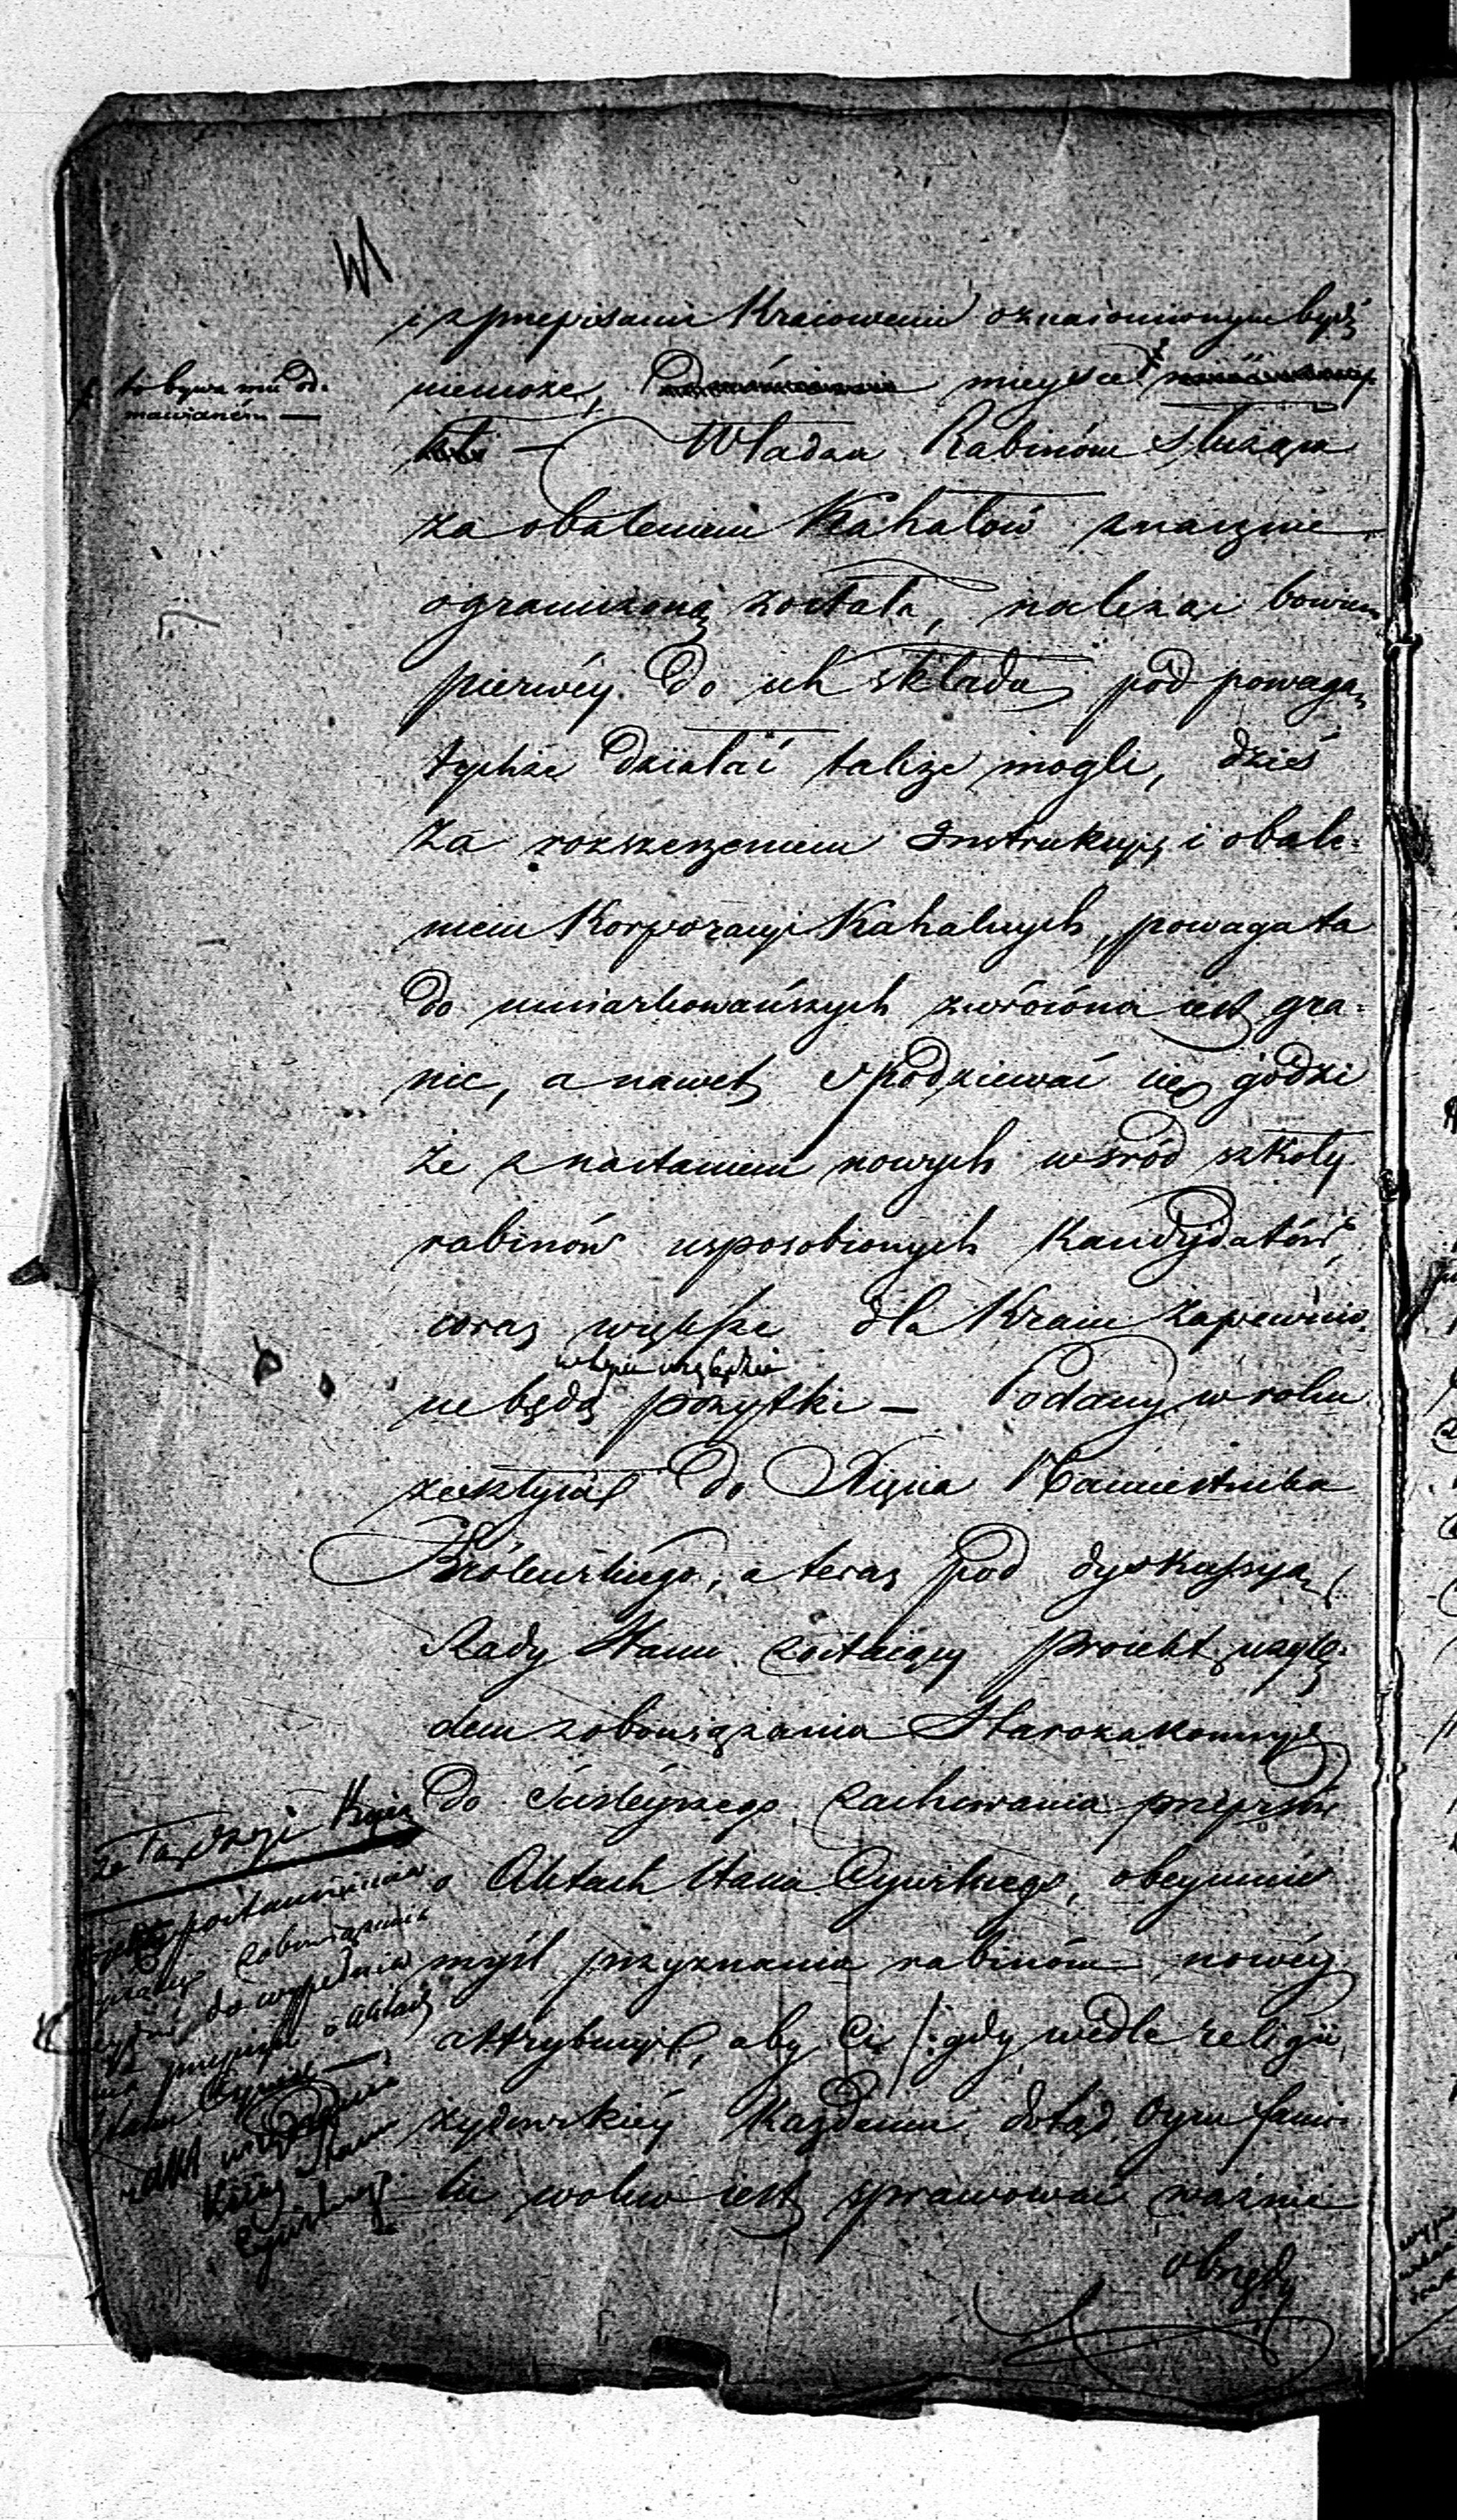 i z przepisami Kraiowemi oznaiomionym bydź
niemoże, mieysce
to bywa mu od=
mawianém —
— Władza Rabinów służąca
za obaleniem Kahałów znacznie
ograniczoną została, należąc bowiem
pierwéy do ich składu, pod powagą
tychże działać także mogli, dziś
za rozszerzeniem Instrukcyi i obale=
niem Korporacyi Kahalnych, powaga ta
do umiarkowańszych zwrócona iest gra=
nic, a nawet spodziewać się godzi
że z nastaniem nowych wśród szkoły
rabinów usposobionych Kandydatów,
coraz większe dla Kraiu zapewnio=
w tym względzie
ne będą pożytki — Podany w roku
zeszłym do Xięcia Namiestnika
Królewskiego, a teraz pod dyskussyą
Rady Stanu zostaiący proiekt wzglę=
dem zobowiązania Starozakonnych
do ściśleyszego zachowania przepisów
o Aktach Stanu Cywilnego, obeymuie
myśl przyznania rabinóm nowéy
attrybucyi, aby Ci /: gdy wedle religii
żydowskiéy każdemu dotąd Oycu fami=
lii wolno iest sprawować ważne
obrzędy
postanowienia
zobowiązania
do wypełnia
przepisów o Aktach
Stanu
Stanu
Cywilnego